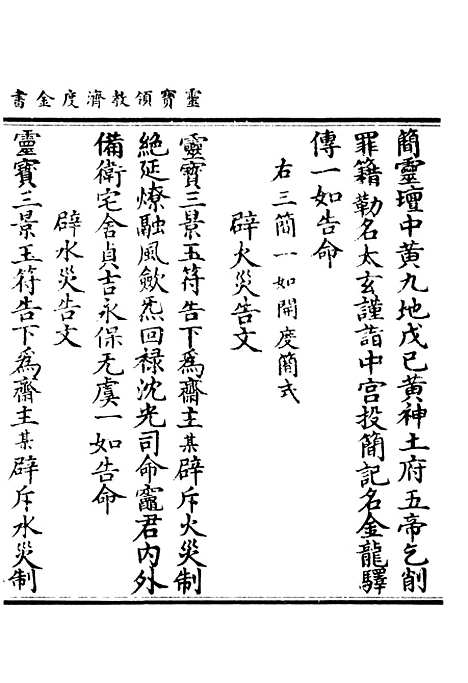 靈寶領教濟度金書
簡靈壇中黃九地戊己黃神土府五帝乞削
罪籍勒名太玄謹詣中宮投簡記名金龍驛
傳一如告命
右三簡一如開度簡式
辟火災告文
靈寶三景玉符告下為齋主某辟斥火災制
絕延燎融風歛炁回祿沈光司命竈君內外
備衛宅舍貞吉永保无虞一如告命
辟水災告文
靈寶三景玉符告下為齋主某辟斥水災制